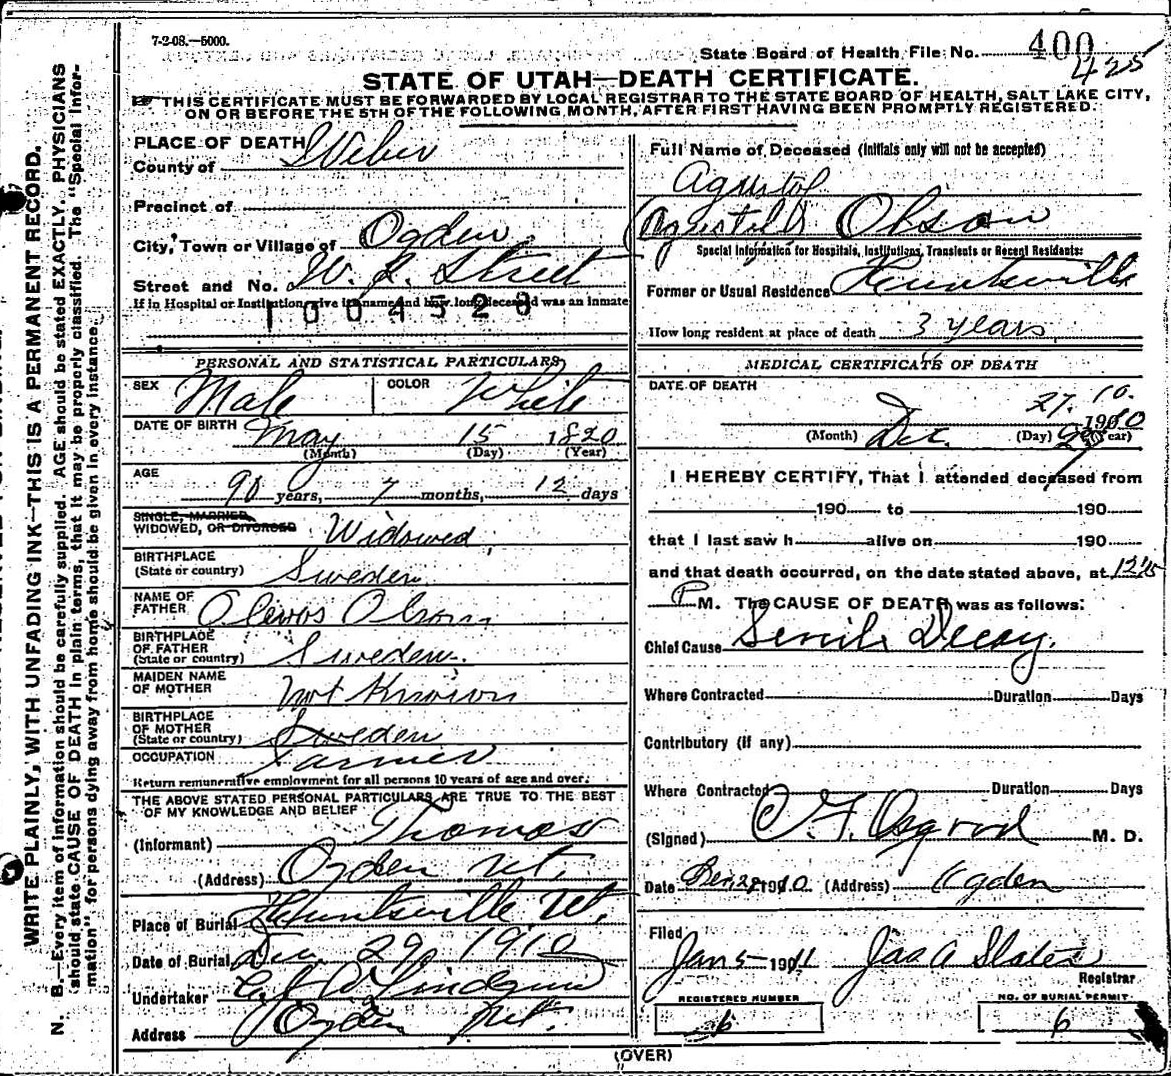 7-2-08.—5000.
State Board of Health File No. 400
425
STATE OF UTAH—DEATH CERTIFICATE.
THIS CERTIFICATE MUST BE FORWARDED BY LOCAL REGISTRAR TO THE STATE BOARD OF HEALTH, SALT LAKE CITY,
ON OR BEFORE THE 5TH OF THE FOLLOWING MONTH, AFTER FIRST HAVING BEEN PROMPTLY REGISTERED.
WRITE PLAINLY, WITH UNFADING INK—THIS IS A PERMANENT RECORD.
N. B.—Every item of information should be carefully supplied. AGE should be stated EXACTLY. PHYSICIANS
should state CAUSE OF DEATH in plain terms, that it may be properly classified. The "Special Infor-
mation" for persons dying away from home should be given in every instance.
PLACE OF DEATH
County of Weber
Precinct of
City, Town or Village of Ogden
Street and No. Street
If in Hospital or Institution, give its name and how long deceased was an inmate
1004528
PERSONAL AND STATISTICAL PARTICULARS
SEX Male COLOR White
DATE OF BIRTH May 15 1820
(Month) (Day) (Year)
AGE
90 years, 7 months, 12 days
SINGLE, MARRIED,
WIDOWED, OR DIVORCED Widowed
BIRTHPLACE
(State or country) Sweden
NAME OF
FATHER Olson
BIRTHPLACE
OF FATHER
(State or country) Sweden
MAIDEN NAME
OF MOTHER Not Known
BIRTHPLACE
OF MOTHER
(State or country) Sweden
OCCUPATION Farmer
Return remunerative employment for all persons 10 years of age and over.
THE ABOVE STATED PERSONAL PARTICULARS ARE TRUE TO THE BEST
OF MY KNOWLEDGE AND BELIEF
(Informant) Thomas
(Address) Ogden Ut.
Place of Burial Huntsville Ut.
Date of Burial Dec. 29, 1910
Undertaker Lindquist
Address Ogden Ut.
Full Name of Deceased (Initials only will not be accepted)
Olson
Special Information for Hospitals, Institutions, Transients or Recent Residents:
Former or Usual Residence Huntsville
How long resident at place of death 3 years
MEDICAL CERTIFICATE OF DEATH
DATE OF DEATH
Dec. 27. 10.
190
(Month) (Day) (Year)
I HEREBY CERTIFY, That I attended deceased from
190 to 190
that I last saw h alive on 190
and that death occurred, on the date stated above, at 12 15
P M. The CAUSE OF DEATH was as follows:
Chief Cause Senile Decay.
Where Contracted Duration Days
Contributory (if any)
Where Contracted Duration Days
(Signed) Osgood M. D.
Date 1910 (Address) Ogden
Filed
Jan 5 1911 Jas A Slater
Registrar
REGISTERED NUMBER
6
NO. OF BURIAL PERMIT
6
(OVER)